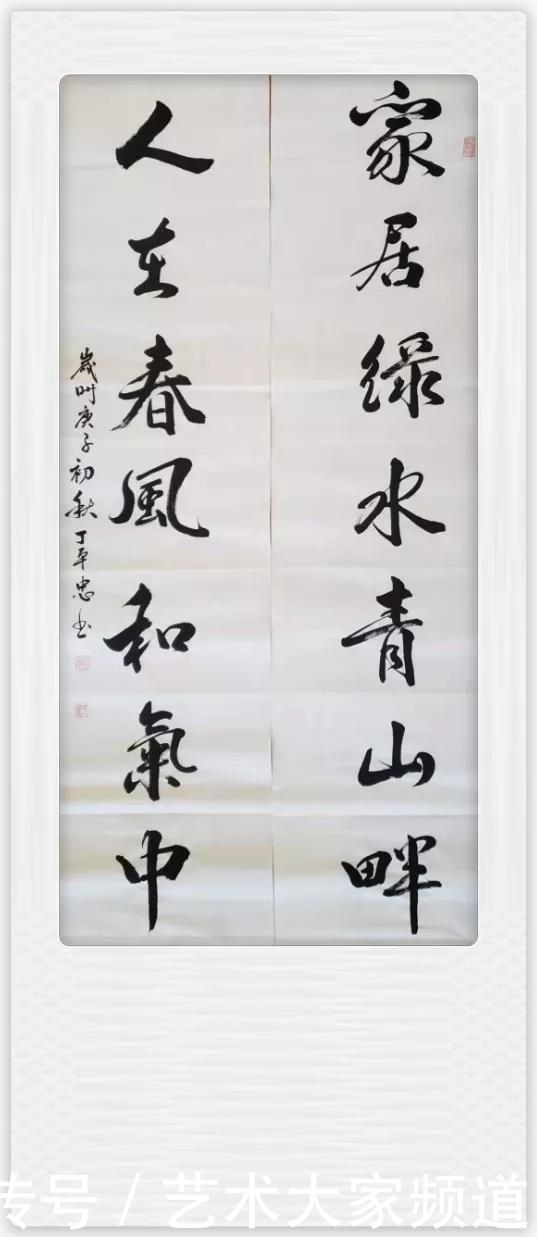 家居绿水青山畔
人在春風和氣中
歲时庚子初秋丁平忠书
号 / 艺术大家频道